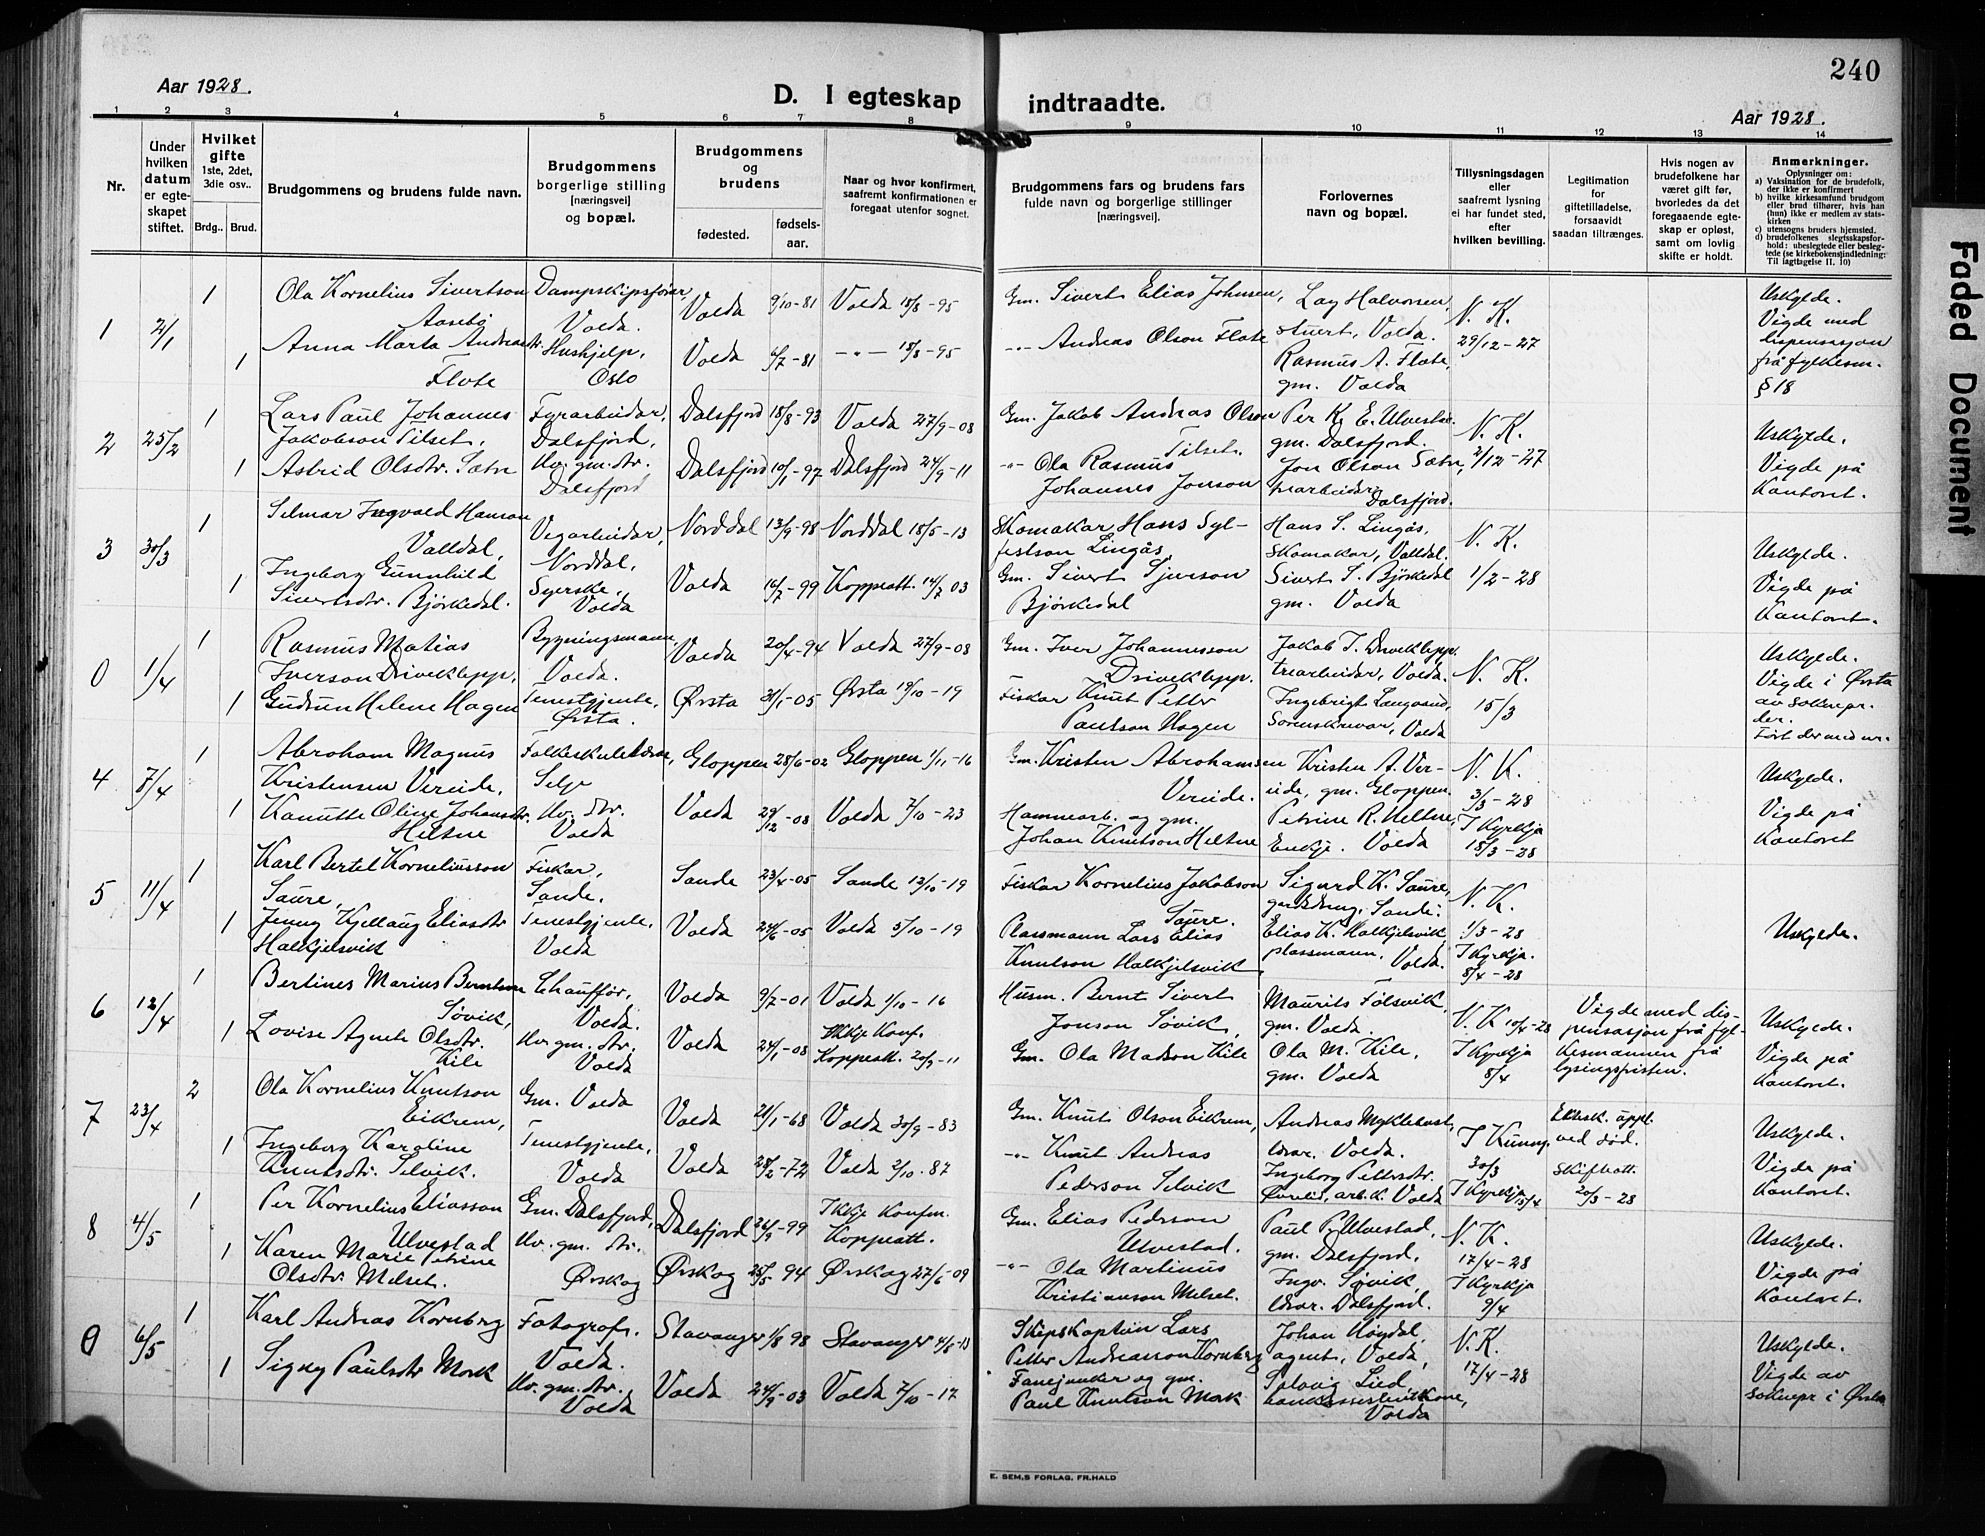 240
Aar 1928.
D. I egteskap indtraadte.
Aar 1928.
1 2 3 4 5 6 7 8 9 10 11 12 13 14
Nr.
Under hvilken datum er egteskapet stiftet.
Hvilket gifte 1ste, 2det, 3die osv..
Brdg.. Brud.
Brudgommens og brudens fulde navn.
Brudgommens borgerlige stilling [næringsvei] og bopæl.
Brudgommens og brudens
fødested.
fødselsaar.
Naar og hvor konfirmert, saafremt konfirmationen er foregaat utenfor sognet.
Brudgommens fars og brudens fars fulde navn og borgerlige stillinger [næringsvei].
Forlovernes navn og bopæl.
Tillysningsdagen eller saafremt lysning ei har fundet sted, efter hvilken bevilling.
Legitimation for giftetilladelse, forsaavidt saadan tiltrænges.
Hvis nogen av brudefolkene har været gift før, hvorledes da det foregaaende egteskap er opløst, samt om lovlig skifte er holdt.
Anmerkninger.
Oplysninger om:
a) Vaksination for de brudefolk, der ikke er konfirmert
b) hvilke kirkesamfund brudgom eller brud tilhører, hvis han (hun) ikke er medlem av statskirken
c) utensogns bruders hjemsted.
d) brudefolkenes slegtsskapsforhold: ubeslegtede eller beslegtede (se kirkebokens indledning: Til iagttagelse II. 10)
1 2/1 1 Ola Kornelius Sivertson Aasebø Dampskipsfører, Volda. Volda 9/10-81 Volda 18/8-95 Gm. Sivert Elias Johnsen, Volda. N. K. 29/12-27 Uskylde. Vigde med dispensasjon frå fylkesm. § 18
1 Anna Marta Andreasdtr. Flote Hushjelp, Oslo Volda 6/7-81 -"- 18/8-95 -"- Andreas Olson Flote Rasmus A. Flote, gm. Volda
2 25/2 1 Lars Paul Johannes Jakobson Tilset, Fyrarbeidar, Dalsfjord, Dalsfjord 18/8-93 Volda 27/9-08 Gm. Jakob Andreas Olson Tilset. Per K. E. Ulvestad gm. Dalsfjord. N. K. 2/12-27 Uskylde. Vigde på Kontoret.
1 Astrid Olsdtr. Sætre Uv. gm. dtr. Dalsfjord Dalsfjord 10/1-97 Dalsfjord 24/9-11 -"- Ola Rasmus Johannes Jonson Jon Olson Sætre, trearbeidar Dalsfjord.
3 30/3 1 Selmar Ingvald Hanson Valldal, Vegarbeidar, Norddal, Norddal 13/9-98 Norddal 18/5-13 Skomakar Hans Sylfestson Lingås, Hans S. Lingås, Skomakar, Valldal. N. K. 1/2-28 Uskylde. Vigde på Kontoret.
1 Ingeborg Gunnhild Sivertsdtr. Bjørkedal. Syerske, Volda Volda 16/7-99 Koppeatt. 14/7 03 Gm. Sivert Sjurson Bjørkedal Sivert S. Bjørkedal gm. Volda
0 1/4 1 Rasmus Matias Iverson Driveklepp, Bygningsmann, Volda. Volda 20/4-94 Volda 27/9-08 Gm. Iver Johannesson Driveklepp. Jakob I. Driveklepp trearbeidar, Volda. N. K. 15/3 Uskylde. Vigde i Ørsta av soknepr. der.
1 Gudrun Helene Hagen Tenestgjente, Ørsta. Ørsta 31/1-05 Ørsta 19/10-19 Fiskar Knut Petter Paulson Hagen Ingebrigt Langvand, Sorenskrivar, Volda
4 7/4 1 Abraham Magnus Kristensen Vereide, Folkeskulelærar, Selje Gloppen 28/6-02 Gloppen 1/11-16 Gm. Kristen Abrahamsen Vereide. Kristen A. Vereide, gm. Gloppen. N. K. 3/3-28 Uskylde. Vigde på Kontoret
1 Kanutte Oline Johansdtr. Heltne Uv. dtr. Volda Volda 29/12-08 Volda 7/10-23 Hammerarb. og gm. Johan Knutson Heltne Petrine R. Heltne, Enkje. Volda I Kyrkja 18/3-28
5 11/4 1 Karl Bertel Korneliusson Saure, Fiskar, Sande. Sande 23/4-05 Sande 12/10-19 Fiskar Kornelius Jakobson Saure. Sigurd K. Saure, Sande. N. K. 1/3-28 Uskylde.
1 Jenny Kjellaug Eliasdtr Halkjelsvik Tenestgjente, Volda Volda 24/6-05 Volda 5/10-19 Plassmann Lars Elias Knutson Halkjelsvik Elias K. Halkjelsvik plassmann, Volda. I Kyrkja. 8/4-28
6 12/4 1 Bertines Marius Berntson Søvik, Chauffør, Volda. Volda 9/7-01 Volda 1/10-16 Husm. Bernt Sivert Jonson Søvik, Maurits Følsvik, gm. Volda. N. K 10/4-28 Vigde med dispensasjon frå fylkesmannen frå lysingsfristen. Uskylde. Vigde på Kontoret.
1 Lovise Agnete Olsdtr. Kile Uv. gm. dtr. Volda Volda 24/1-08 Ikkje Konf. Koppesk. 20/9-11 Gm. Ola Madson Kile Ola M. Kile, gm. Volda I Kyrkja 8/4
7 23/4 2 Ola Kornelius Knutson Eikrem, Gm. Volda Volda 21/1-68 Volda 30/9-83 Gm. Knut Olson Eikrem, Andreas Myklebust, lærar. Volda. I Kunng. 30/3 Ektesk. oppl. ved død. Skifteatt. 20/3-28 Uskylde. Vigde på Kontoret.
1 Ingeborg Karoline Knutsdtr. Selvik. Tenestgjente, Volda Volda 28/2-72 Volda 2/10.87 -"- Knut Andreas Pederson Selvik Ingeborg Pettersdtr. Øvrelid, arb.k. Volda I Kyrkja 15/4
8 4/5 1 Per Kornelius Eliasson Ulvestad Gm. Dalsfjord, Dalsfjord 26/9-99 Ikkje Konfm. Koppeatt. Gm. Elias Pederson Ulvestad. Paul P. Ulvestad, gm. Dalsfjord, N. K. 17/4-28 Uskylde. Vigde på Kontoret.
1 Karen Marie Petrine Olsdtr. Melset. Uv. gm. dtr. Ørskog Ørskog 25/5 94 Ørskog 27/6-09 -"- Ola Martinus Kristianson Melset. Ingv. Søvik, lærar. Dalsfjord. I Kyrkja 9/4
0 6/5 1 Karl Andreas Kornberg Fotograf. Volda. Stavanger 1/8 98 Stavanger 4/5-13 Skipskaptein Lars Petter Andreasson Kornberg Johan Høydal, agent, Volda, N. K. 17/4-28 Uskylde. Vigde av soknepr i Ørsta
1 Signy Paulsdtr Mork Uv. gm. dtr. Volda Volda 24/9-03 Volda 7/10-17 Fanejunker og gm. Paul Knutson Mork Solveig Lied Volda
E. SEM,S FORLAG, FR.HALD
Faded Document